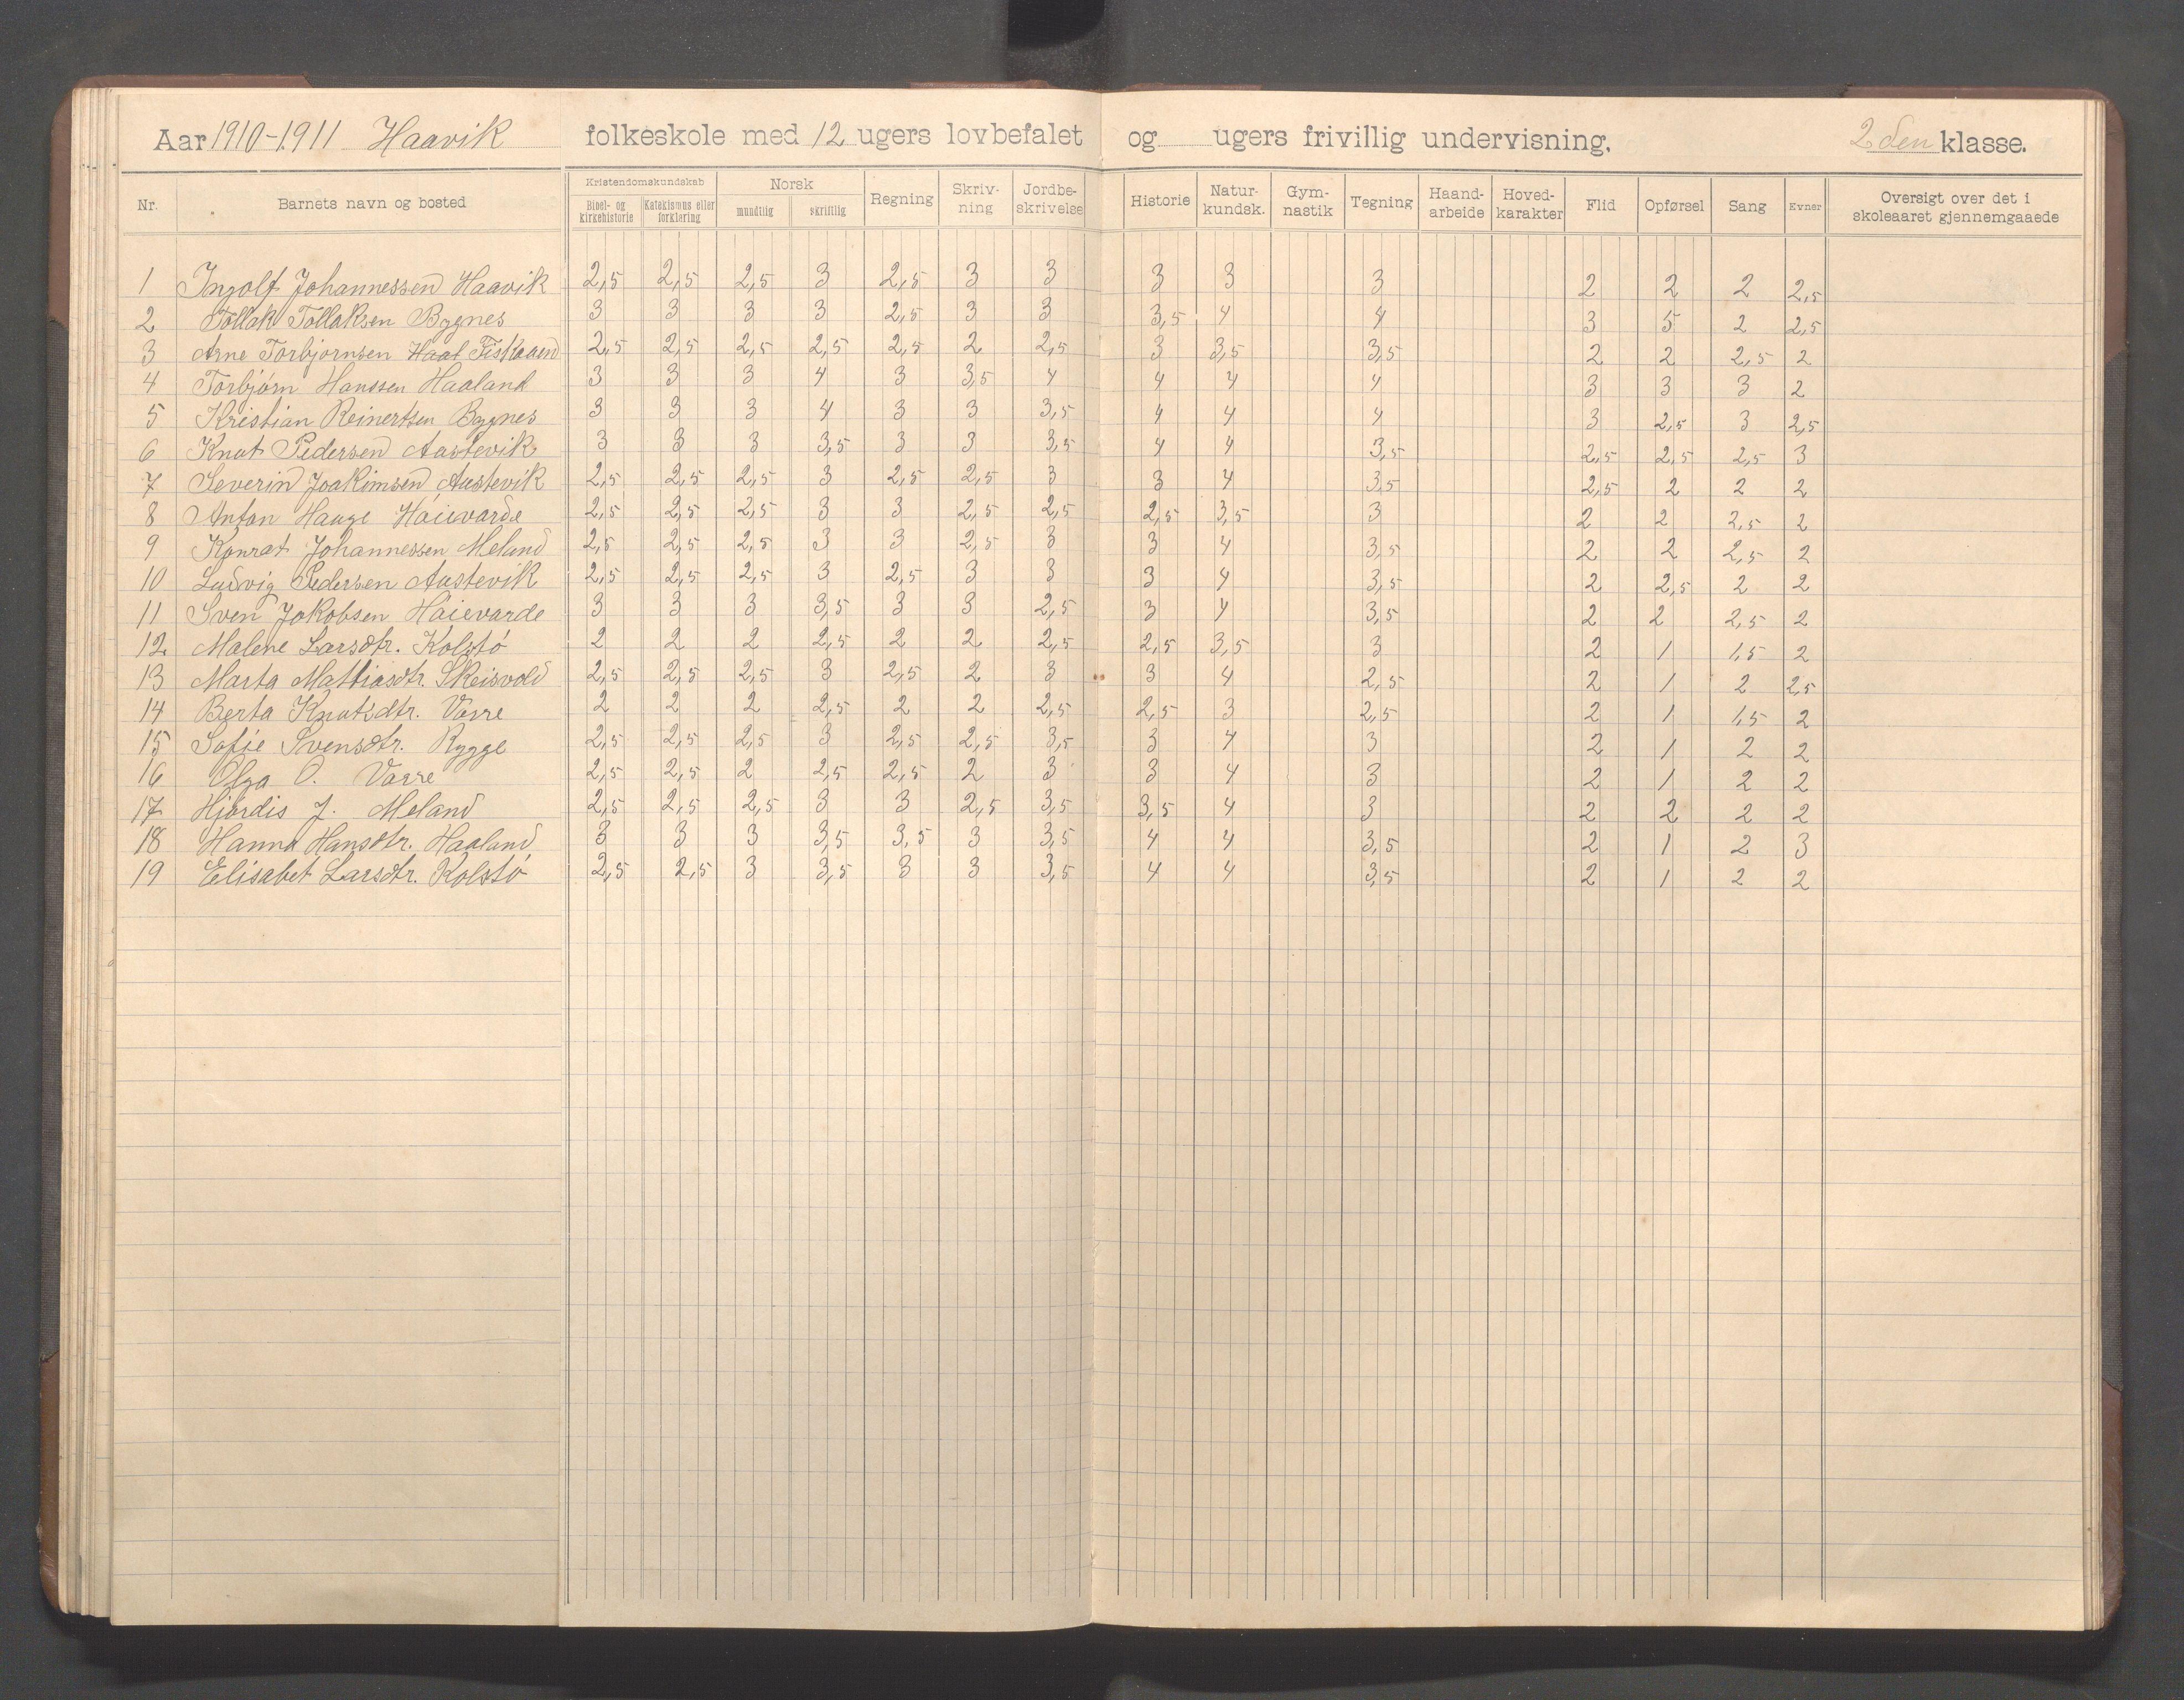 Aar 1910-1911 Haavik folkeskole med 12 ugers lovbefalet og ugers frivillig undervisning. 2den klasse.
Nr. Barnets navn og bosted Kristendomskundskab Bibel- og kirkehistorie Katekismus eller forklaring Norsk mundtlig skriftlig Regning Skriv-ning Jordbe-skrivelse Historie Natur-kundsk. Gym-nastik Tegning Haand-arbeide Hoved-karakter Flid Opførsel Sang Evner Oversigt over det i skoleaaret gjennemgaaede
1 Ingolf Johannessen Haavik 2,5 2,5 2,5 3 2,5 3 3 3 3 3 2 2 2 2,5
2 Tollak Tollaksen Bygnes 3 3 3 3 2,5 3 3 3,5 4 4 3 5 2 2,5
3 Arne Torbjørnsen Haal Fiskaaen 2,5 2,5 2,5 2,5 2,5 2 2,5 3 3,5 3,5 2 2 2,5 2
4 Torbjørn Hanssen Haaland 3 3 3 4 3 3,5 4 4 4 4 3 3 3 2
5 Kristian Reinertsen Bygnes 3 3 3 4 3 3 3,5 4 4 4 3 2,5 3 2,5
6 Knut Pedersen Austevik 3 3 3 3,5 3 3 3,5 4 4 3,5 2,5 2,5 2,5 3
7 Severin Joakimsen Austevik 2,5 2,5 2,5 3 2,5 2,5 3 3 4 3,5 2,5 2 2 2
8 Anton Hauge Høievarde 2,5 2,5 2,5 3 3 2,5 2,5 2,5 3,5 3 2 2 2,5 2
9 Konrat Johannessen Meland 2,5 2,5 2,5 3 3 2,5 3 3 4 3,5 2 2 2,5 2
10 Ludvig Pedersen Austevik 2,5 2,5 2,5 3 2,5 3 3 3 4 3,5 2 2,5 2 2
11 Sven Jakobsen Høievarde 3 3 3 3,5 3 3 2,5 3 4 3,5 2 2 2,5 2
12 Malene Larsdtr. Kolstø 2 2 2 2,5 2 2 2,5 2,5 3,5 3 2 1 1,5 2
13 Marta Mattiasdtr. Skeisvold 2,5 2,5 2,5 3 2,5 2 3 3 4 2,5 2 1 2 2,5
14 Berta Knutsdtr. Vorre 2 2 2 2,5 2 2 2,5 2,5 3 2,5 2 1 1,5 2
15 Sofie Svensdtr. Rygge 2,5 2,5 2,5 3 2,5 2,5 3,5 3 4 3 2 1 2 2
16 Olga O. Vorre 2,5 2,5 2 2,5 2,5 2 3 3 4 3 2 1 2 2
17 Hjørdis J. Meland 2,5 2,5 2,5 3 3 2,5 3,5 3,5 4 3 2 2 2 2
18 Hanna Hansdtr. Haaland 3 3 3 3,5 3,5 3 3,5 4 4 3,5 2 1 2 3
19 Elisabet Larsdtr. Kolstø 2,5 2,5 3 3,5 3 3 3,5 4 4 3,5 2 1 2 2